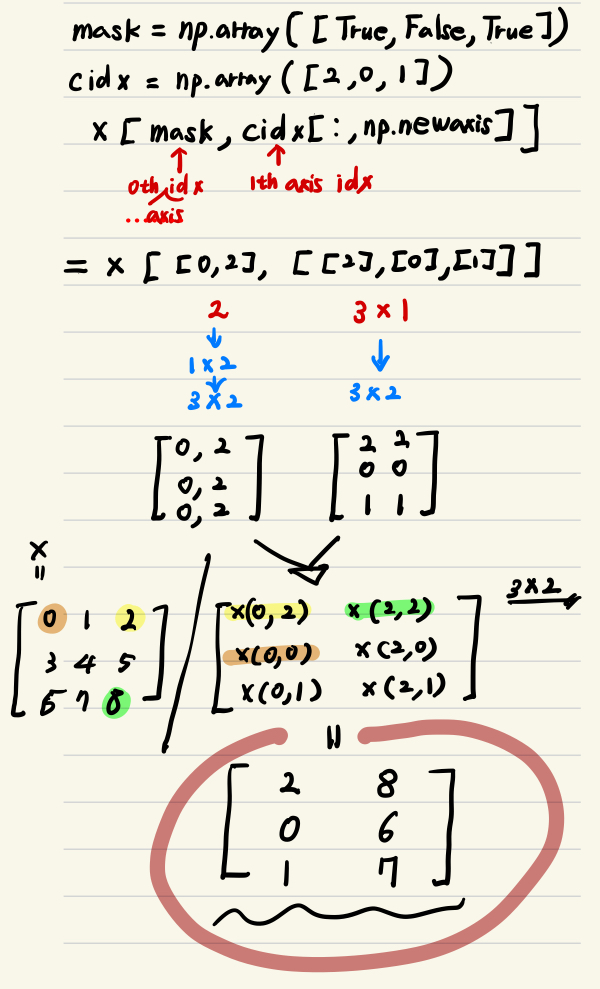 mask = np.array([True, False, True])
cidx = np.array([2,0,1])
x[mask, cidx[:, np.newaxis]]
0th idx 1th axis idx
...axis
= x [[0,2], [[2],[0],[1]]]
2 3×1
1×2
3×2 3×2
[0, 2 [2 2
0, 2 0 0
0, 2] 1 1]
x
=
[0 1 2
3 4 5
6 7 8]
[x(0,2) x(2,2)
x(0,0) x(2,0)
x(0,1) x(2,1)]
3×2
=
[2 8
0 6
1 7]